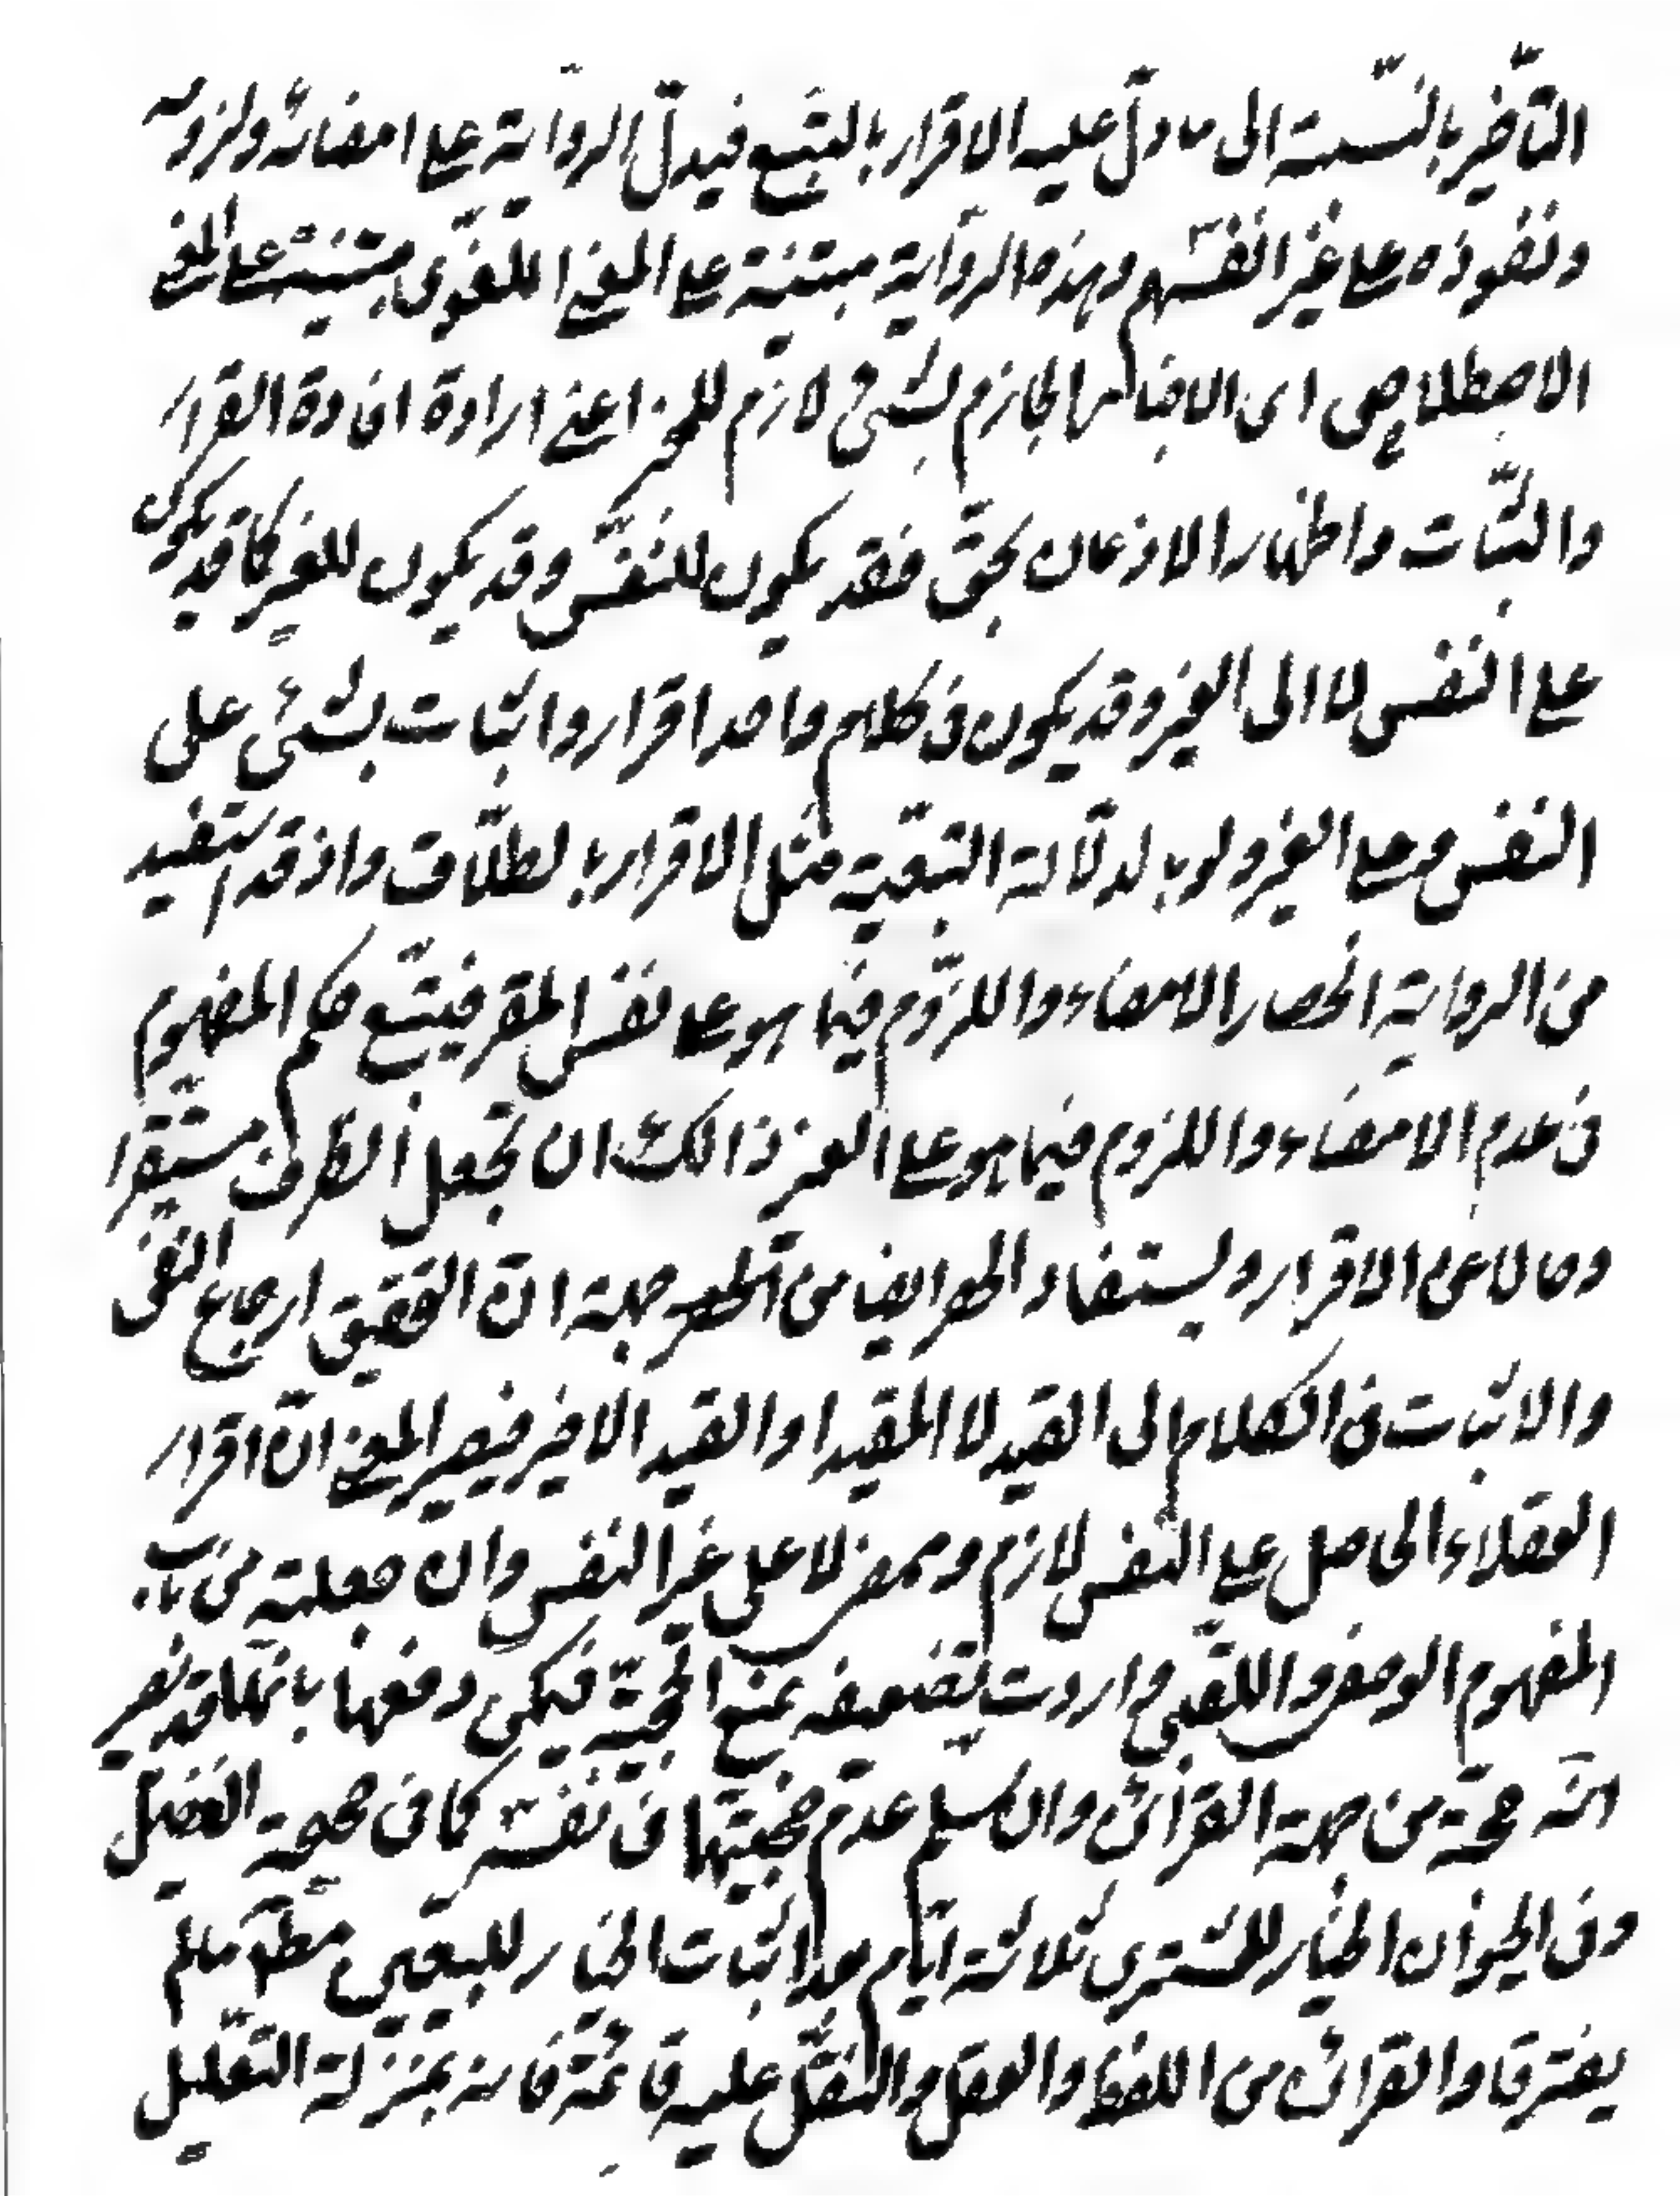 التأخير بالنسبة الى ما دلّ عليه الاقرار بالتبع فيدلّ الرواية على امضائه ولزومه
ونفوذه على غير انفسهم وهذه الرواية مبتنية على المعنى اللغوى مبتنيته على المعنى
الاصطلاحى اى الاخبار الجازم بشئ لازم للمخبر اعنى ارادة افادة القرار
والثبات واظهار الاذعان بحق فقد يكون للنفس وقد يكون للغير كما قد يكون
على النفس لا الى الغير وقد يكون فى كلام واحد اقرار واثبات بشئ على
النفس وعلى الغير ولو بالدلالة التبعية مثل الاقرار بالطلاق واذ قد استفيد
من الرواية انحصار الامضاء واللزوم فيما هو على نفس المقر فيتبع حكم المفهوم
فى عدم الامضاء واللزوم فيما هو على الغير ذالك ان تجعل الظرف مستقرا
وحالا عن الاقرار ويستفاد الحصر ايضا من الحصر جهة انّ التحقيق ارجاع النفى
والاثبات فى الكلام الى القيد لا المقيد او القيد الاخير فيصير المعنى انّ اقرار
العقلاء الحاصل على النفس لازم وممضى لا على غير النفس وان جعلته من باب
المفهوم الوصفى واللقبى واردت تضعيفه بمنع الحجية فيمكن دفعها بانّها قد تصير
انه حجة من جهة القرائن وان سلم عدم حجيتها فى نفسه كما فى صحيحة الفضيل
وفى الحيوان الخيار للمشترى ثلاثة ايام بعد اثبات الخيار للبيعين مطلقا ما لم
يفترقا والقرائن من اللفظ والعقل والنقل عليه قائمة فانه بمنزلة التعليل